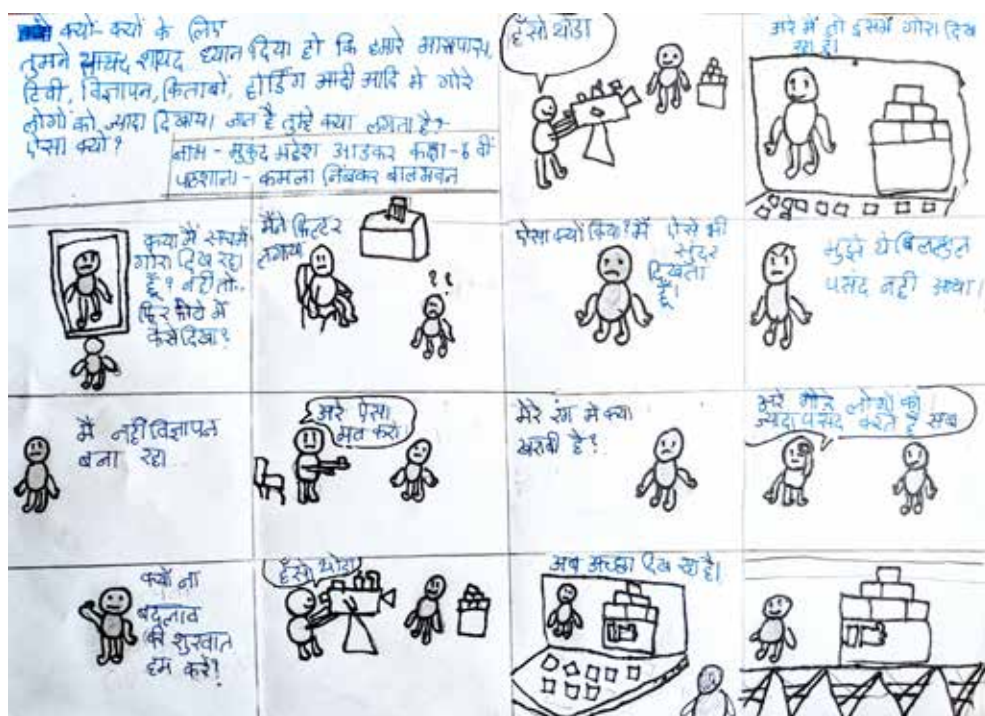 क्यों-क्यों के लिए
तुमने शायद ध्यान दिया हो कि हमारे आसपास,
टिवी, विज्ञापन, किताबों, होर्डिंग आदी आदि मे गोरे
लोगो को ज्यादा दिखाया जात है तुम्हे क्या लगता है?
ऐसा क्यों?
नाम - मुकुंद महेश आडकर कक्षा - 6 वीं
पाठशाला - कमला निंबकर बालभवन
हँसो थोडा
अरे मैं तो इसमें गोरा दिख
रहा हूँ।
क्या मैं सचमें
गोरा दिख रहा
हूँ? नहीं तो..
फिर फोटो में
कैसे दिखा?
मैंने फिल्टर
लगाया
? ?
ऐसा क्यों किया? मैं ऐसे भी
सुंदर
दिखता
हूँ।
मुझे ये बिलकुल
पसंद नहीं आया।
मैं नहीं विज्ञापन
बना रहा
अरे ऐसा
मत करो
मेरे रंग मे क्या
खराबी है?
अरे गोरे लोगो को
ज्यादा पसंद करते है सब
क्यों ना
बदलाव
की शुरवात
हम करे?
हँसो थोडा
अब अच्छा दिख रहा है।